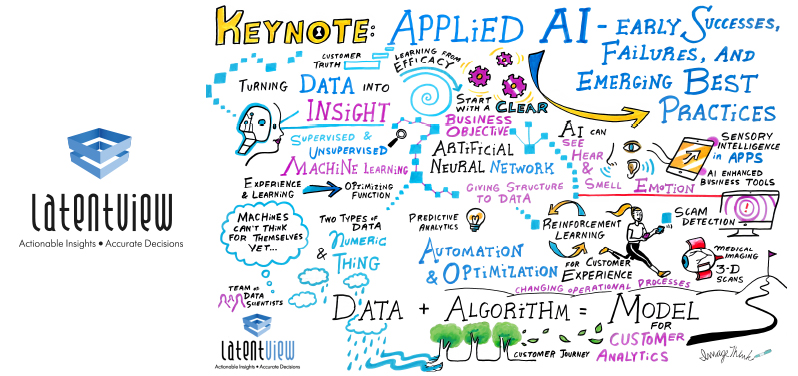 latentview
Actionable Insights • Accurate Decisions
KEYNOTE: APPLIED AI - EARLY SUCCESSES,
FAILURES, AND
EMERGING BEST
PRACTICES
CUSTOMER
TRUTH
LEARNING FROM
EFFICACY
TURNING DATA INTO
INSIGHT
START
WITH A CLEAR
BUSINESS
OBJECTIVE
SUPERVISED &
UNSUPERVISED
MACHINE LEARNING
ARTIFICIAL
NEURAL NETWORK
AI CAN
SEE
HEAR
&
SMELL
EMOTION
SENSORY
INTELLIGENCE
in APPS
AI ENHANCED
BUSINESS TOOLS
EXPERIENCE
& LEARNING
OPTIMIZING
FUNCTION
GIVING STRUCTURE
TO DATA
MACHINES
CAN'T THINK
FOR THEMSELVES
YET...
TWO TYPES OF
DATA
NUMERIC
&
THING
PREDICTIVE
ANALYTICS
REINFORCEMENT
LEARNING
FOR CUSTOMER
EXPERIENCE
SCAM
DETECTION
MEDICAL
IMAGING
3-D
SCANS
AUTOMATION
& OPTIMIZATION
CHANGING OPERATIONAL PROCESSES
TEAM OF
DATA
SCIENTISTS
DATA + ALGORITHM = MODEL
FOR
CUSTOMER
ANALYTICS
CUSTOMER JOURNEY
latentview
Actionable Insights • Accurate Decisions
ImageThink